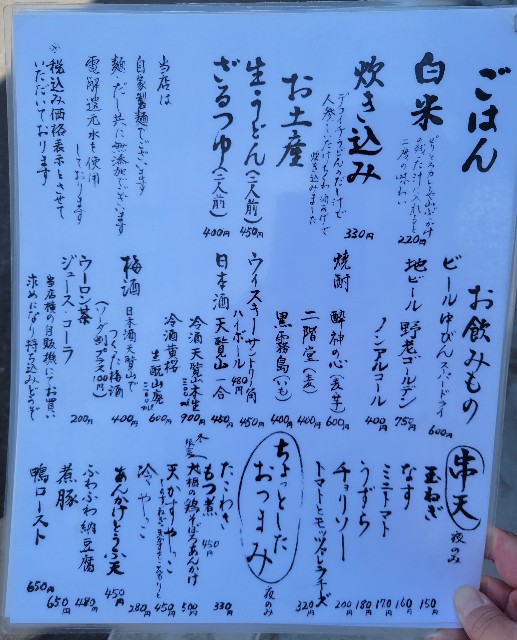 ごはん
白米
220円
炊き込み
人参、しいたけ
炊き込みました
330円
お土産
生うどん(二人前)
450円
ざるつゆ(二人前)
400円
当店は
自家製麺でございます
麺・だし共に無添加でございます
電解還元水を使用
しております
※税込み価格表示とさせて
いただいております
お飲みもの
ビール 中びん スーパードライ
600円
地ビール 野老ゴールデン
750円
ノンアルコール
400円
焼酎
酔神の心(麦・芋)
600円
二階堂(麦)
400円
黒霧島(いも)
400円
ウィスキー サントリー角
ハイボール 480円
450円
日本酒 天覧山 一合
450円
冷酒 天覧山本生
300ml
900円
冷酒 黄格
生酛山廃
300ml
600円
梅酒 日本酒天覧山で
つくった梅酒
400円
(ソーダ割プラス100円)
ウーロン茶
200円
ジュース・コーラ
当店横の自販機にてお買い
求めになり持ち込みどうぞ
串天 夜のみ
玉ねぎ
150円
なす
160円
ミニトマト
170円
うずら
180円
チョリソー
200円
トマトとモッツァレラチーズ
320円
ちょっとした
おつまみ
夜のみ
たこわさ
330円
もつ煮
450円
冬限定
地粉の鶏そぼろあんかけ
500円
天かすやっこ
450円
冷ややっこ
280円
あんかけとうふ天
450円
ふわふわ納豆腐
480円
煮豚
650円
鴨ロースト
650円